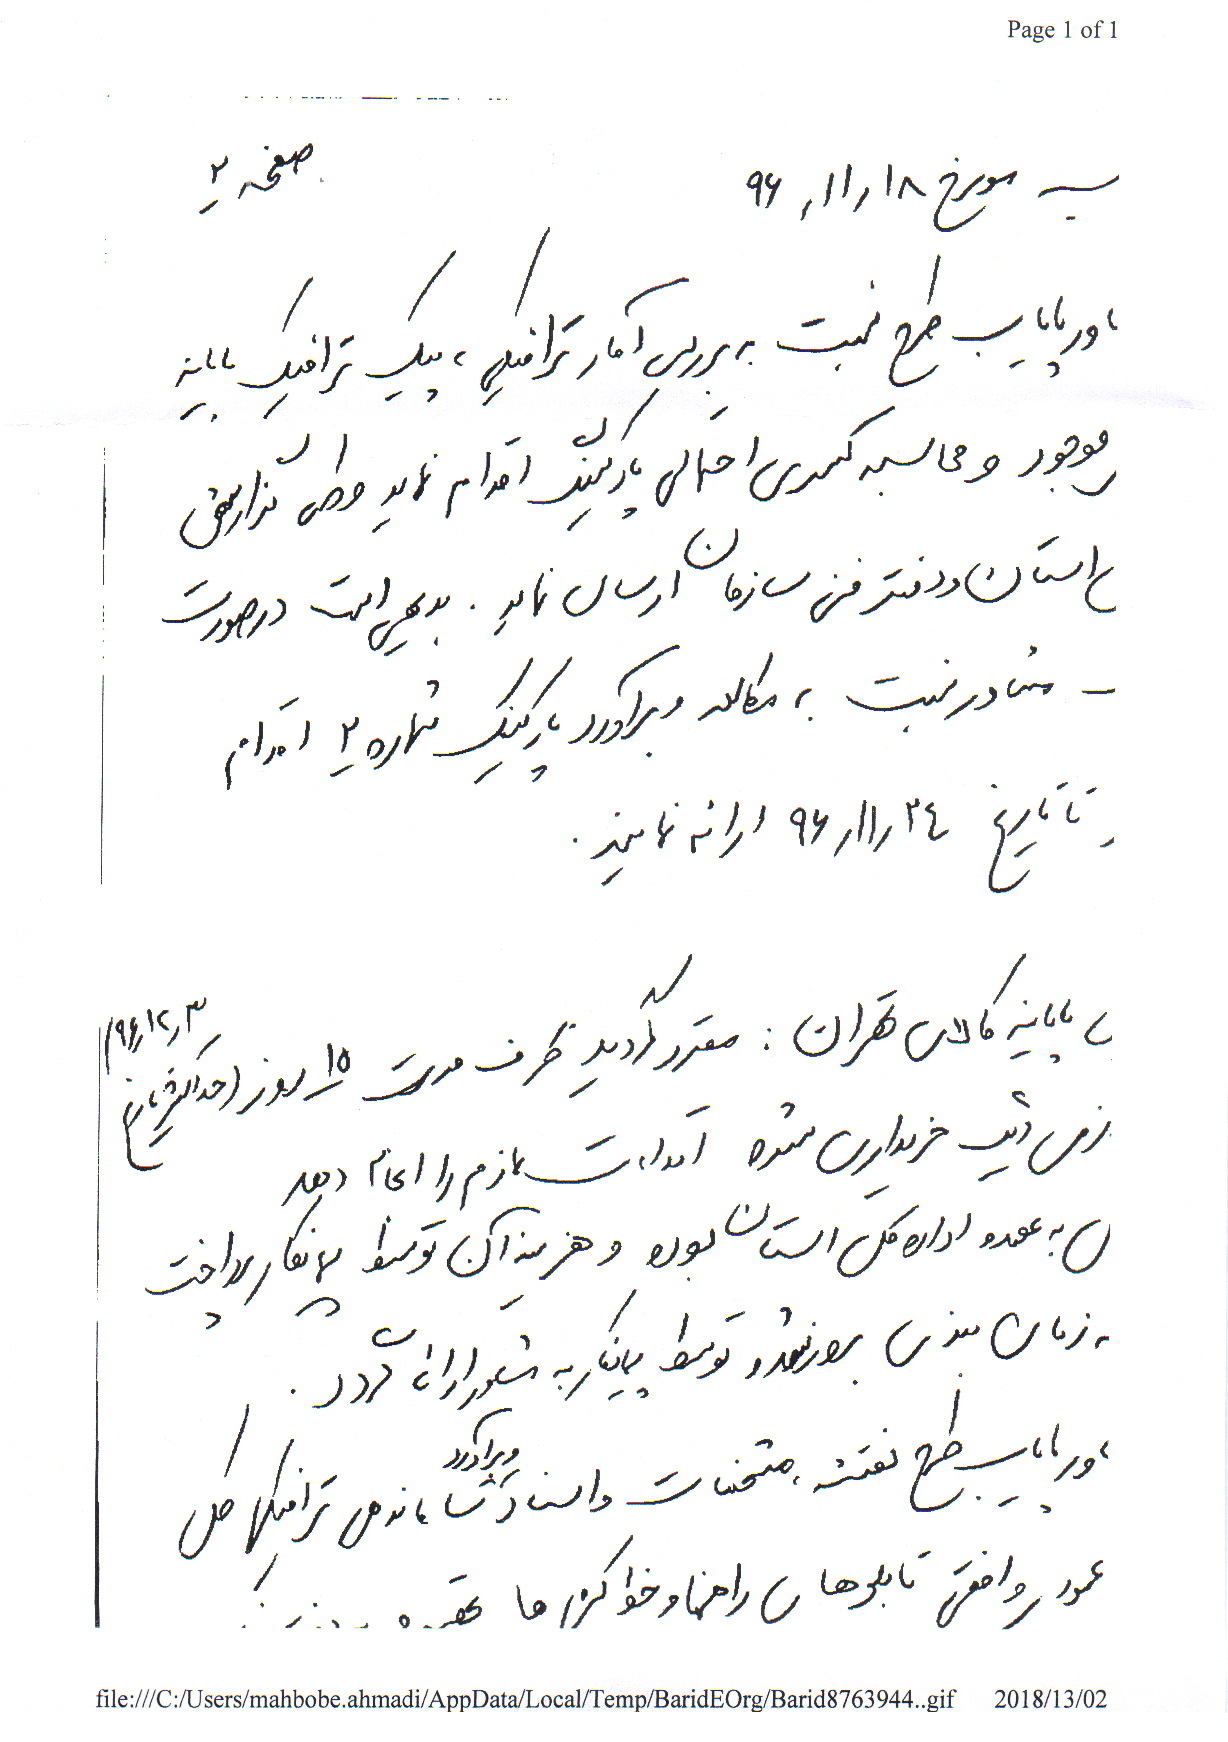 Page 1 of 1
صفحه ۲
مورخ ۹۶/۱۱/۱۸
طرح نسبت به بررسی آمار ترافیکی ، پیک ترافیک پایانه
موجود و محاسبه کسری احتمالی پارکینگ اقدام نماید وطی گزارشی
استان ودفتر فنی سازمان ارسال نماید . بدیهی است درصورت
مشاور نسبت به مطالعه وبرآورد پارکینگ شماره ۲ اقدام
تا تاریخ ۹۶/۱۱/۲۴ ارائه نمایند .
پایانه کالای تهران : مقرر گردید ظرف مدت ۱۵ روز (حداکثر تاریخ
۹۶/۱۲/۳
خریداری شده اقدامات لازم را انجام دهد
به عهده اداره کل استان بوده و هزینه آن توسط پیمانکار پرداخت
زمان بندی بروز شده توسط پیمانکار به مشاور ارائه گردد .
طرح نقشه ، مشخصات واسناد وبرآورد ترافیکی کل
عمودی وافقی تابلوهای راهنما وخط کشی ها
file:///C:/Users/mahbobe.ahmadi/AppData/Local/Temp/BaridEOrg/Barid8763944..gif 2018/13/02